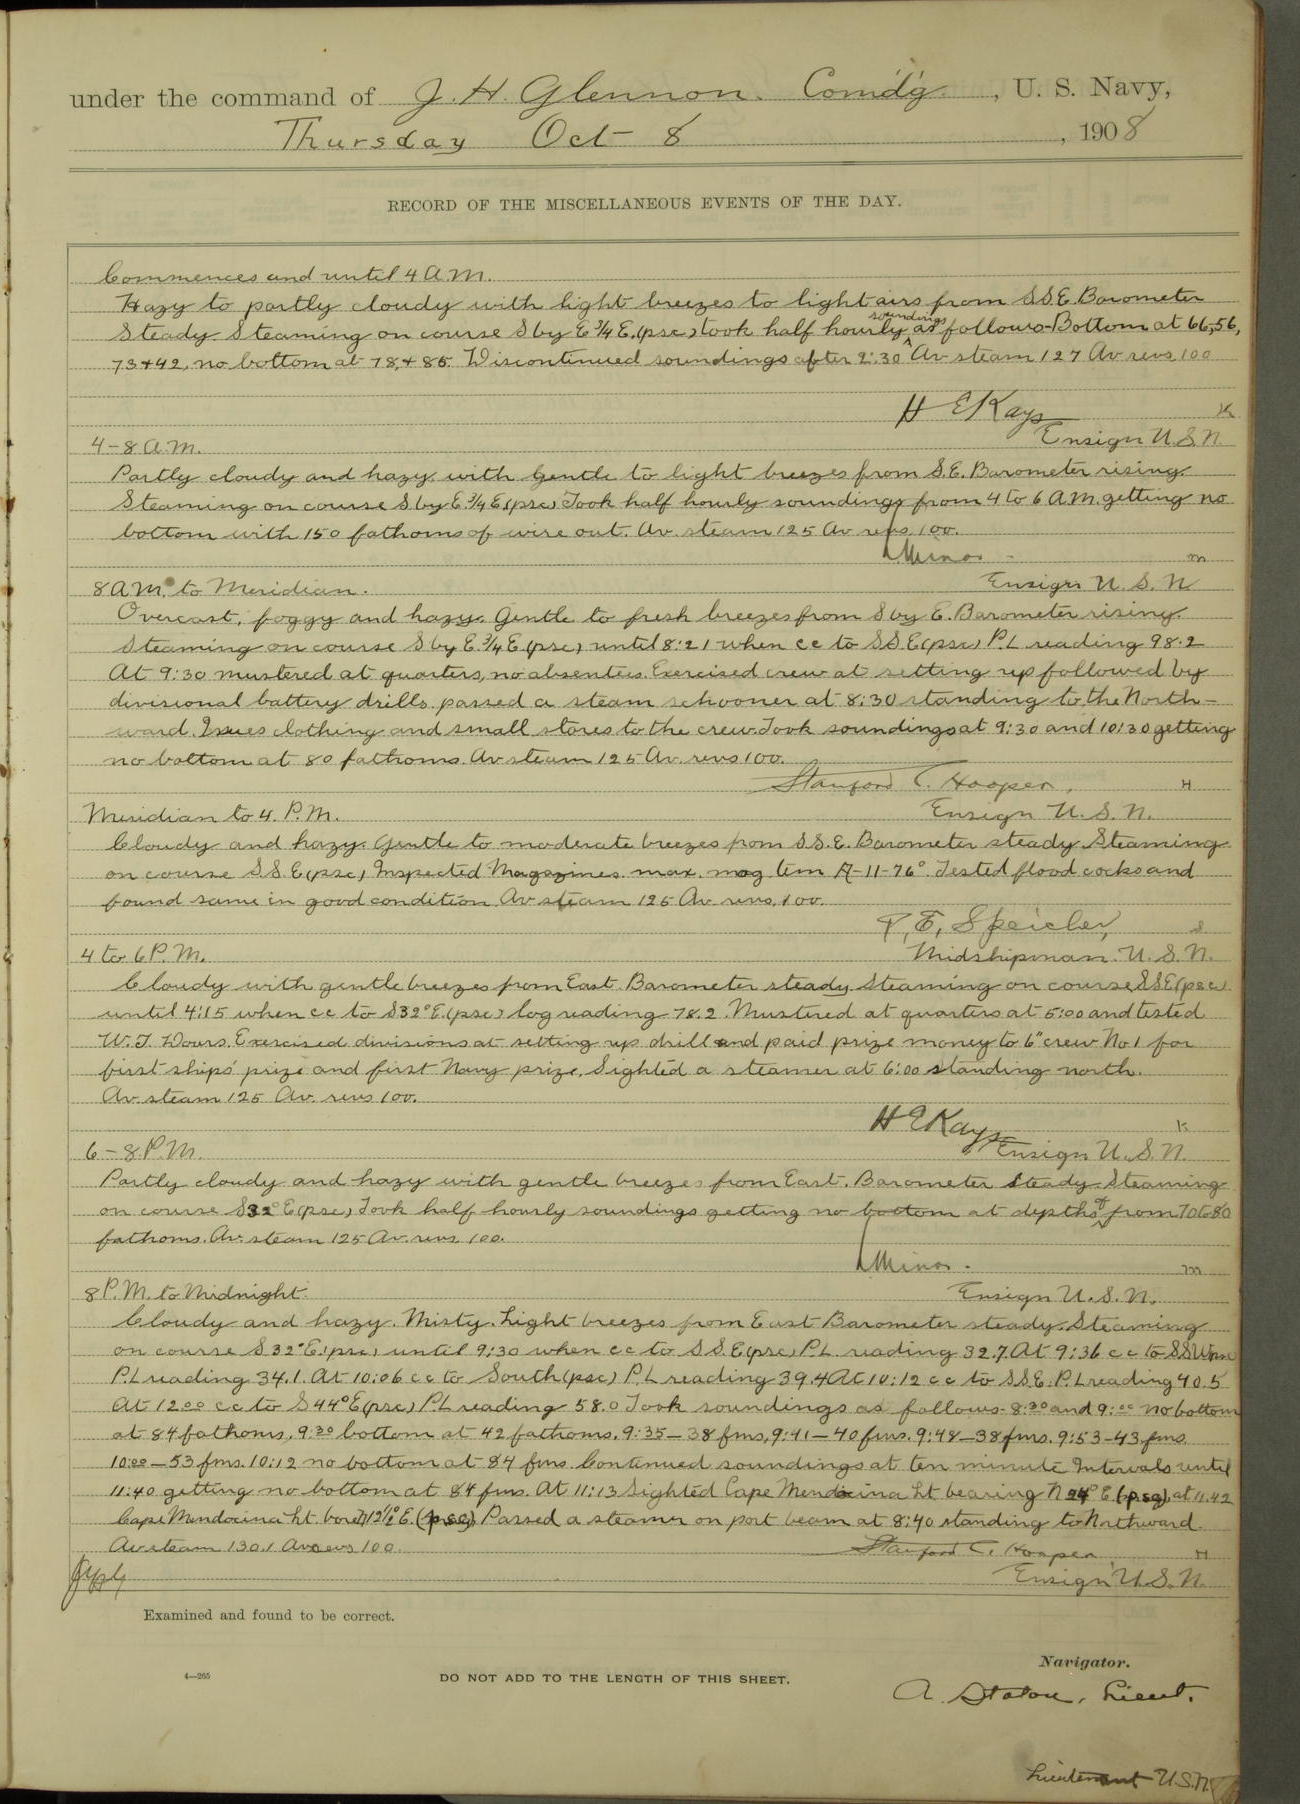 under the command of J. H. Glennon. Comd'g, U. S. Navy,
Thursday Oct 8, 1908
RECORD OF THE MISCELLANEOUS EVENTS OF THE DAY.
Commences and until 4 A.M.
Hazy to partly cloudy with light breezes to light airs from S.S.E. Barometer
soundings
Steady. Steaming on course S by E ¾ E. (psc) took half hourly ^ as follows-Bottom at 66, 56,
73 & 42, no bottom at 78, & 85. Discontinued soundings after 2:30 Av steam 127 Av revs 100
H E Kays K
Ensign U.S.N.
4-8 A.M.
Partly cloudy and hazy with gentle to light breezes from S.E. Barometer rising.
Steaming on course S by E. ¾ E (psc) Took half hourly soundings from 4 to 6 A.M. getting no
bottom with 150 fathoms of wire out. Av. steam 125 Av revs. 100.
L Minor m
Ensign U.S.N
8 A.M. to Meridian.
Overcast, foggy and hazy. Gentle to fresh breezes from S by E. Barometer rising.
Steaming on course S by E. ¾ E (psc) until 8:21 when cc to S S.E (psc) P.L reading 98.2
At 9:30 mustered at quarters, no absentees. Exercised crew at setting up followed by
divisional battery drills. passed a steam schooner at 8:30 standing to the North-
ward. Issues clothing and small stores to the crew. Took soundings at 9:30 and 10:30 getting
no bottom at 80 fathoms. Av steam 125 Av. revs 100.
Stanford C. Hooper, H
Ensign U.S.N.
Meridian to 4. P.M.
Cloudy and hazy. Gentle to moderate breezes from S.S.E. Barometer steady. Steaming
on course S.S.E (psc) Inspected Magazines. max. mag. tem A-11-76°. Tested flood cocks and
found same in good condition. Av steam 125 Av. revs. 100.
R. E. Speicher, S
Midshipman U.S.N.
4 to 6 P.M.
Cloudy with gentle breezes from East. Barometer steady. Steaming on course SSE (psc)
until 4:15 when cc to S 32° E. (psc) log reading 78.2. Mustered at quarters at 5:00 and tested
W. T. Doors. Exercised divisions at setting up drill and paid prize money to 6" crew No 1 for
first ships' prize and first Navy prize. Sighted a steamer at 6:00 standing north.
Av. steam 125 Av. revs 100.
H E Kays K
Ensign U.S.N.
6-8 P.M.
Partly cloudy and hazy with gentle breezes from East. Barometer steady. Steaming
of
on course S 32° E (psc) Took half hourly soundings getting no bottom at depths ^ from 70 to 80
fathoms. Av. steam 125 Av. revs. 100.
L Minor. m
Ensign U.S.N.
8 P.M. to Midnight.
Cloudy and hazy. Misty. Light breezes from East Barometer steady. Steaming
on course S. 32° E. (psc) until 9:30 when cc to S S. E (psc) P.L. reading 32.7. At 9:36 cc to SSW psc
P.L reading 34.1. At 10:06 cc to South (psc) P.L reading 39.4 At 10:12 cc to S S E. P.L reading 40.5
At 12:00 cc to S 44° E (psc) P.L reading 58.0 Took soundings as follows- 8:30 and 9:00 no bottom
at 84 fathoms. 9:30 bottom at 42 fathoms. 9:35-38 fms, 9:41-40 fms. 9:48-38 fms. 9:53-43 fms.
10:00-53 fms. 10:12 no bottom at 84 fms. Continued soundings at ten minute intervals until
11:40 getting no bottom at 84 fms. At 11:13 sighted Cape Mendocina Lt bearing N 24° E (psc), at 11.42
Cape Mendocina Lt bore N 12½° E. (psc), Passed a steamer on port beam at 8:40 standing to Northward.
Av steam 130.1 Av revs 100.
Stanford C. Hooper, H
Ensign U.S.N.
Examined and found to be correct.
4-265
DO NOT ADD TO THE LENGTH OF THIS SHEET.
Navigator.
A. Staton, Lieut.
Lieutenant U.S.N.